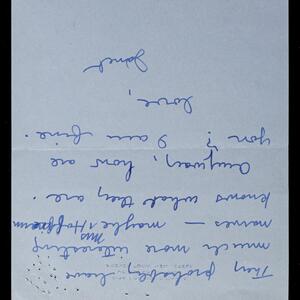 They probably have
much more interesting
names — maybe Mrs Hoffman
knows what they are.
Anyway, how are
you? I am fine.
Love,
Janet